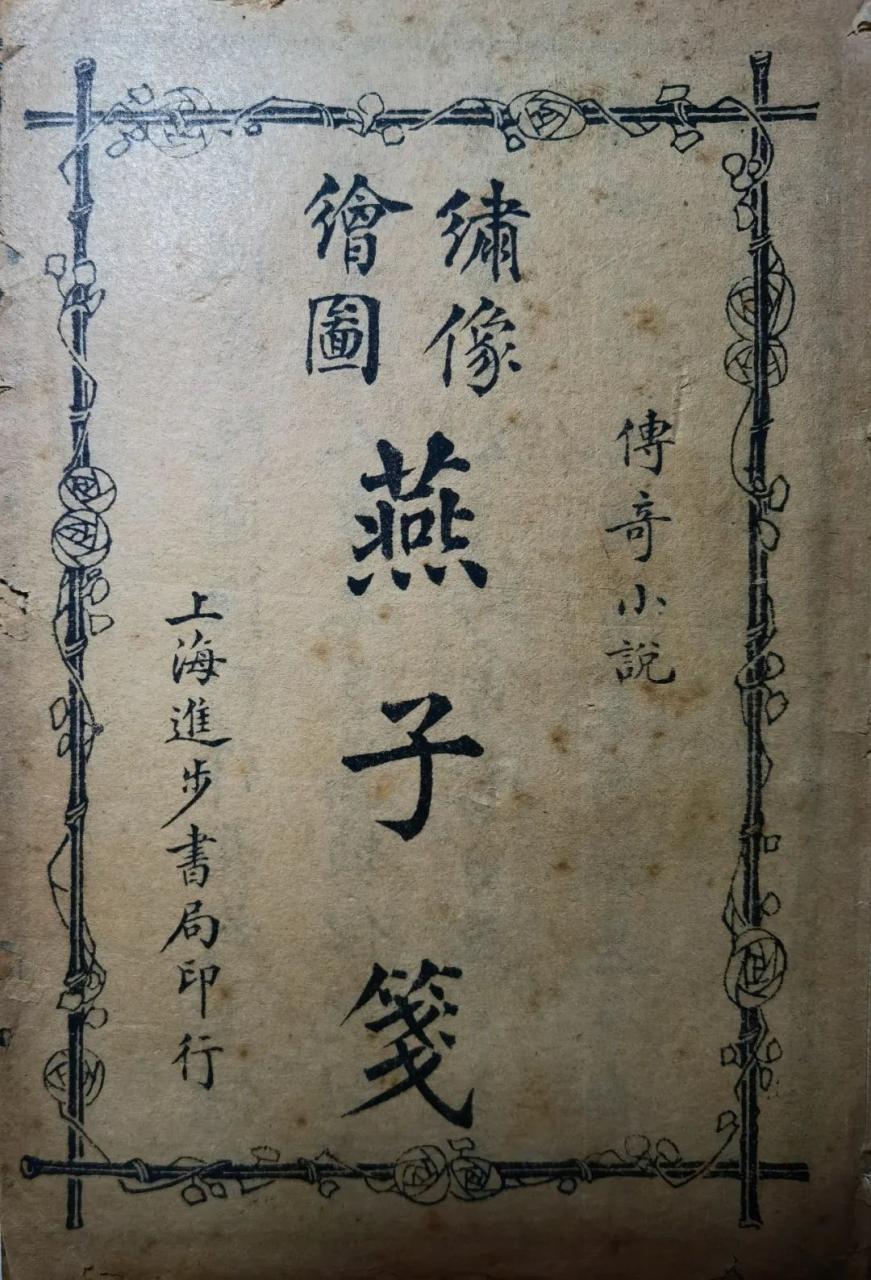 傳奇小說
繡像
繪圖
燕子箋
上海進步書局印行